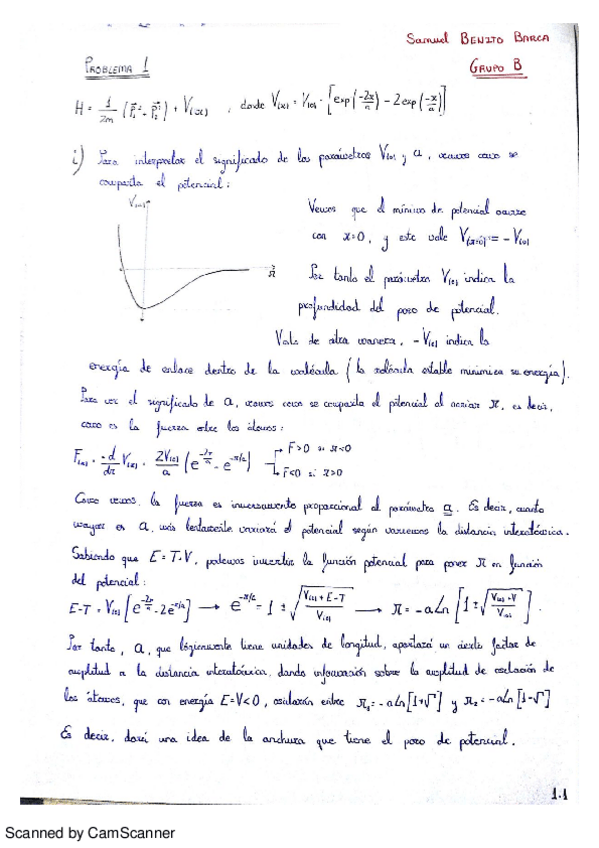 Samuel BENITO BARCA
PROBLEMA 1
GRUPO B
H = 1/2m (p₁² - p₂²) + V(x) , donde V(x) = V(0) · [exp(-2x/a) - 2exp(-x/a)]
i) Para interpretar el significado de los parámetros V(0) y a, veamos como se
comporta el potencial:
V(x)
x
Vemos que el mínimo de potencial ocurre
con x=0, y este vale V(x=0) = -V(0)
Por tanto el parámetro V(0) indica la
profundidad del pozo de potencial.
de otra manera, -V(0) indica la
energía de enlace dentro de la molécula (la molécula estable minimiza su energía).
Para ver el significado de a, veamos como se comporta el potencial al variar x, es decir,
como es la fuerza entre los átomos:
F(x) = -d/dx V(x) = 2V(0)/a (e^(-2x/a) - e^(-x/a))
F>0 si x<0
F<0 si x>0
Como vemos, la fuerza es inversamente proporcional al parámetro a. Es decir, cuanto
mayor es a, más lentamente variará el potencial según variemos la distancia interatómica.
Sabiendo que E = T+V, podemos invertir la función potencial para poner x en función
del potencial:
E-T = V(0) [e^(-2x/a) - 2e^(-x/a)] → e^(-x/a) = 1 ± √((V(0)+E-T)/V(0)) → x = -a Ln [1 ± √((V(0)+V)/V(0))].
Por tanto, a, que lógicamente tiene unidades de longitud, aportará un factor de
amplitud a la distancia interatómica, dando información sobre la amplitud de oscilación de
los átomos, que con energía E=V<0, oscilarán entre x₁ = -a Ln[1+√] y x₂ = -a Ln[1-√]
Es decir, dará una idea de la anchura que tiene el pozo de potencial.
1.1
Scanned by CamScanner